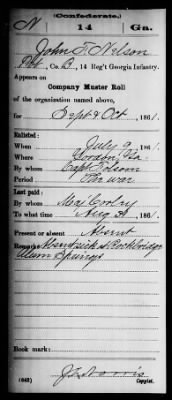 (Confederate.)
N 14 Ga.
John F. Nelson
Pvt, Co. B, 14 Reg't Georgia Infantry.
Appears on
Company Muster Roll
of the organization named above,
for Sept & Oct, 1861.
Enlisted:
When July 9, 1861.
Where Gordon, Ga.
By whom Capt Folsom
Period The war
Last paid:
By whom Maj Cooley
To what time Aug 31, 1861.
Present or absent Absent
Remarks: Absent sick at Rockbridge
Alum Springs
Book mark:
(642) Copyist.